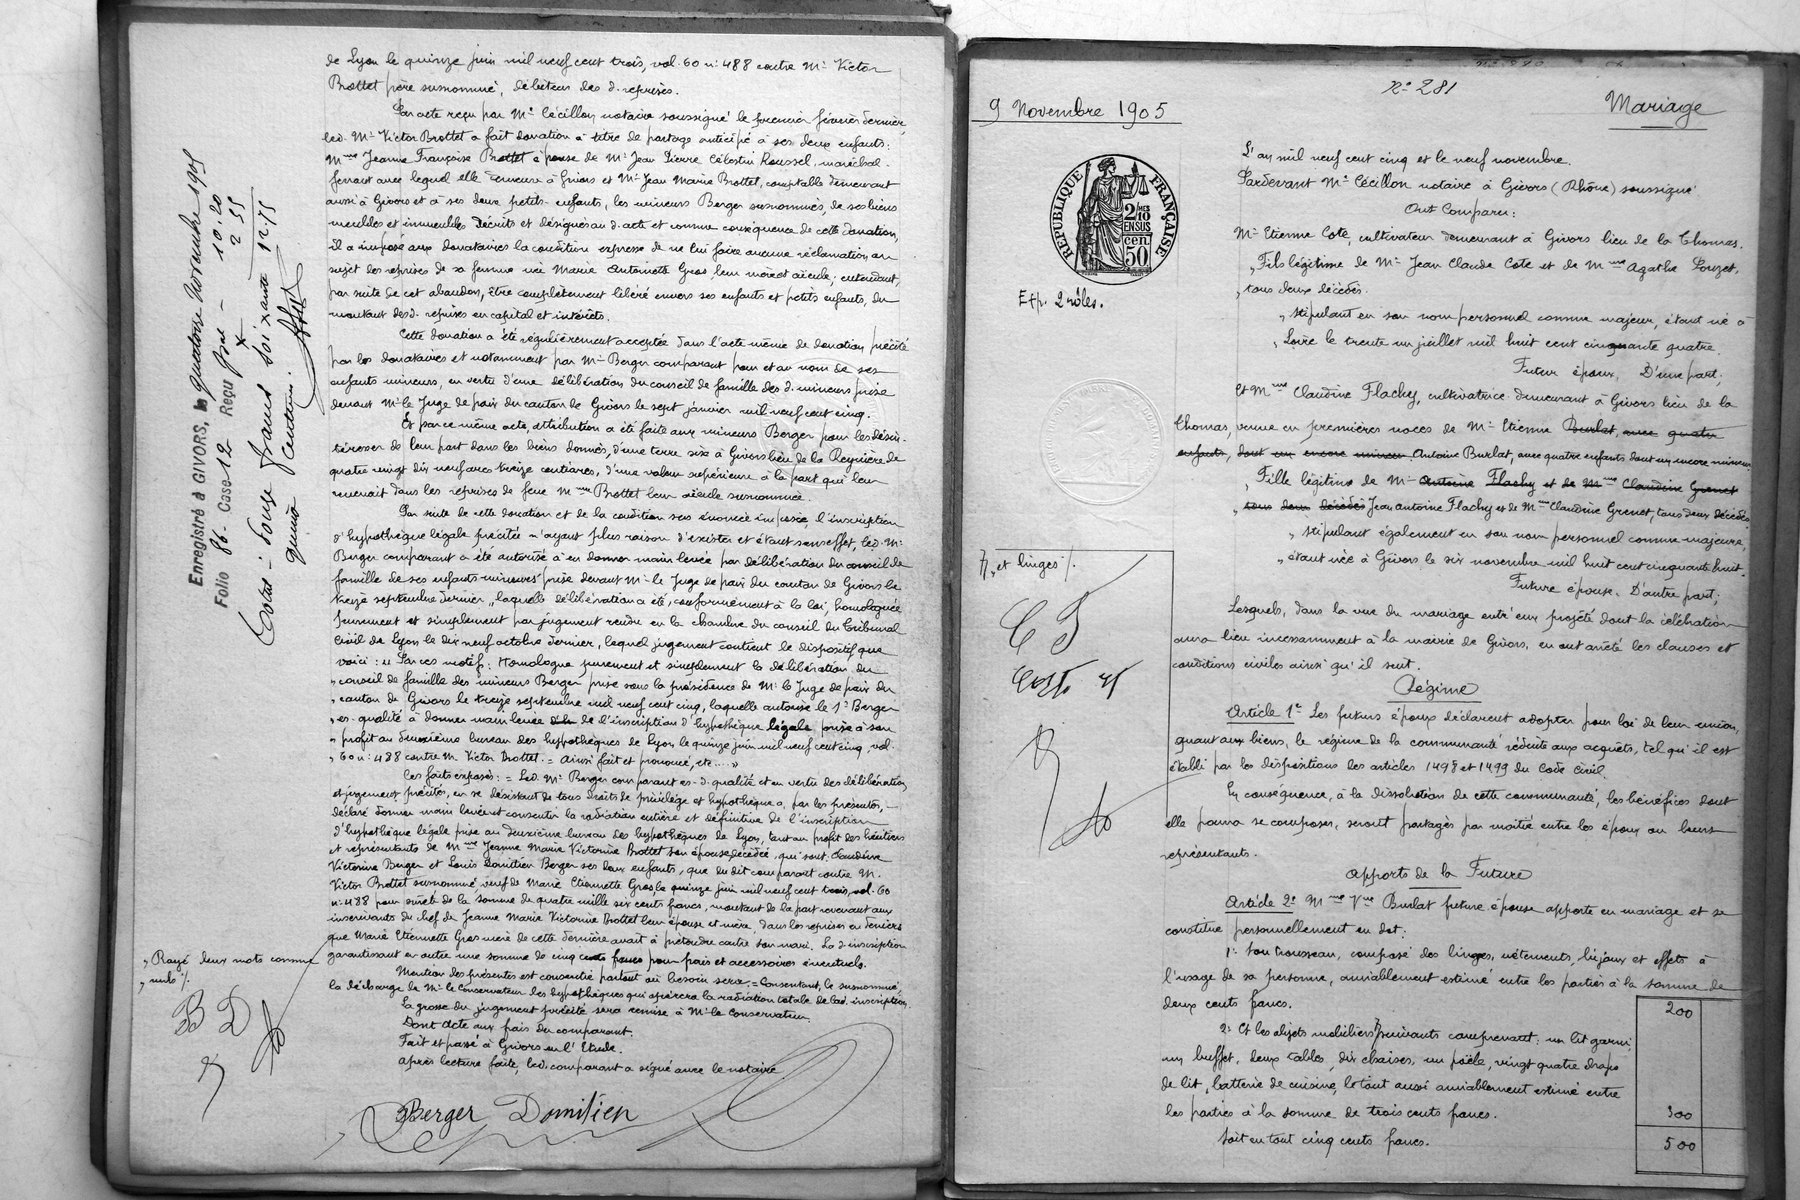 de Lyon le quinze juin mil neuf cent trois, vol. 60 n° 488 contre Mr Victor
Brottet père susnommé, débiteur des d. reprises.
Par acte reçu par Me Cécillon notaire soussigné le premier février dernier,
led. Mr Victor Brottet a fait donation à titre de partage anticipé à ses deux enfants:
Mme Jeanne Françoise Brottet épouse de Mr Jean Pierre Célestin Roussel, maréchal-
ferrant avec lequel elle demeure à Givors et Mr Jean Marie Brottet, comptable demeurant
aussi à Givors et à ses deux petits-enfants, les mineurs Berger susnommés, de ses biens
meubles et immeubles décrits et désignés au d. acte et comme conséquence de cette donation,
il a imposé aux donataires la condition expresse de ne lui faire aucune réclamation au
sujet des reprises de sa femme née Marie Antoinette Gros, leur mère et aïeule; entendant,
par suite de cet abandon, être complètement libéré envers ses enfants et petits enfants, du
montant desd. reprises en capital et intérêts.
Cette donation a été régulièrement acceptée dans l'acte même de donation précité
par les donataires et notamment par Mr Berger comparant pour et au nom de ses
enfants mineurs, en vertu d'une délibération du conseil de famille des d. mineurs prise
devant Mr le Juge de paix du canton de Givors le sept janvier mil neuf cent cinq.
Et par ce même acte, attribution a été faite aux mineurs Berger pour les désin-
téresser de leur part dans les biens donnés, d'une terre sise à Givors lieu de la Reynière de
quatre vingt dix neuf ares treize centiares, d'une valeur supérieure à la part qui leur
revenait dans les reprises de feue Mme Brottet leur aïeule susnommée.
Par suite de cette donation et de la condition sus énoncée imposée, l'inscription
d'hypothèque légale précitée n'ayant plus raison d'exister et étant sans effet, led. Mr
Berger comparant a été autorisé à en donner main levée par délibération du conseil de
famille de ses enfants mineurs prise devant Mr le Juge de paix du canton de Givors le
treize septembre dernier, laquelle délibération a été, conformément à la loi, homologuée
purement et simplement par jugement rendu en la chambre du conseil du Tribunal
Civil de Lyon le dix neuf octobre dernier, lequel jugement contient le dispositif que
voici: « Par ces motifs: Homologue purement et simplement la délibération du
„ conseil de famille des mineurs Berger prise sous la présidence de Mr le Juge de paix du
„ canton de Givors le treize septembre mil neuf cent cinq, laquelle autorise le Sr Berger
„ es-qualité à donner main levée de l'inscription d'hypothèque légale prise à son
„ profit au deuxième bureau des hypothèques de Lyon, le quinze juin mil neuf cent cinq, vol.
„ 60 n° 488 contre M. Victor Brottet. = Ainsi fait et prononcé, etc.... »
Ces faits exposés: = Led. Mr Berger comparant es-d. qualité et en vertu des délibération
et jugement précités, en se désistant de tous droits de privilège et hypothèque a, par les présentes, —
déclaré donner main levée et consentir la radiation entière et définitive de l'inscription
d'hypothèque légale prise au deuxième bureau des hypothèques de Lyon, tant au profit des héritiers
et représentants de Mme Jeanne Marie Victorine Brottet son épouse décédée, qui sont: Claudine
Victorine Berger et Louis Domitien Berger ses deux enfants, que du dit comparant contre M.
Victor Brottet susnommé, veuf de Marie Etiennette Gros, le quinze juin mil neuf cent trois, vol. 60
n° 488 pour sûreté de la somme de quatre mille six cents francs, montant de la part revenant aux
inscrivants du chef de Jeanne Marie Victorine Brottet leur épouse et mère, dans les reprises en deniers
que Marie Etiennette Gros mère de cette dernière avait à prétendre contre son mari. La d. inscription
garantissant en outre une somme de cinq cents francs pour frais et accessoires éventuels.
Mention des présentes est consentie partout où besoin sera. = Consentant, le susnommé,
la décharge de Mr le Conservateur des hypothèques qui opérera la radiation totale de lad. inscription.
La grosse du jugement précité sera remise à Mr le Conservateur.
Dont acte aux frais du comparant.
Fait et passé à Givors en l'Etude.
Après lecture faite, led. comparant a signé avec le notaire
Berger Domitien
Enregistré à GIVORS, le quatorze Novembre 1905
Folio 86 Case 12 Reçu
10.20
2 55
12.75
Total: Douze francs soixante
quinze Centimes.
„ Rayé deux mots comme
„ nuls /.
B D
N° 281
9 Novembre 1905
Mariage
RÉPUBLIQUE FRANÇAISE
2/10 EN SUS
50 cen.
Exp. 2 rôles.
L'an mil neuf cent cinq et le neuf novembre.
Pardevant Me Cécillon notaire à Givors (Rhône) soussigné
Ont Comparu:
Mr Etienne Cote, cultivateur demeurant à Givors lieu de la Thomas.
„ Fils légitime de Mr Jean Claude Cote et de Mme Agathe Pouzet,
„ tous deux décédés.
„ stipulant en son nom personnel comme majeur, étant né à
„ Loire le trente un juillet mil huit cent cinquante quatre.
Futur époux, D'une part;
Et Mme Claudine Flachy, cultivatrice demeurant à Givors lieu de la
Thomas, veuve en premières noces de Mr Etienne Burlat, avec quatre
enfants, dont un encore mineur. Antoine Burlat, avec quatre enfants dont un encore mineur
„ Fille légitime de Mr Antoine Flachy et de Mme Claudine Grenet
„ tous deux décédés Jean Antoine Flachy et de Mme Claudine Grenet, tous deux décédés.
„ stipulant également en son nom personnel comme majeure,
„ étant née à Givors le six novembre mil huit cent cinquante huit.
Future épouse. D'autre part;
Lesquels, dans la vue du mariage entr'eux projeté dont la célébration
aura lieu incessamment à la mairie de Givors, en ont arrêté les clauses et
conditions civiles ainsi qu'il suit.
Régime
Article 1er Les futurs époux déclarent adopter pour loi de leur union,
quant aux biens, le régime de la communauté réduite aux acquêts, tel qu'il est
établi par les dispositions des articles 1498 et 1499 du Code Civil.
En conséquence, à la dissolution de cette communauté, les bénéfices dont
elle pourra se composer, seront partagés par moitié entre les époux ou leurs
représentants.
Apports de la Future
Article 2e Mme Vve Burlat future épouse apporte en mariage et se
constitue personnellement en dot:
1° Son trousseau, composé des linges, vêtements, bijoux et effets à
l'usage de sa personne, amiablement estimé entre les parties à la somme de
deux cents francs. 200
2° Et les objets mobiliers suivants comprenant: un lit garni,
un buffet, deux tables, dix chaises, un poêle, vingt quatre draps
de lit, batterie de cuisine, le tout aussi amiablement estimé entre
les parties à la somme de trois cents francs. 300
Soit en tout cinq cents francs. 500
„ et linges /.
C F